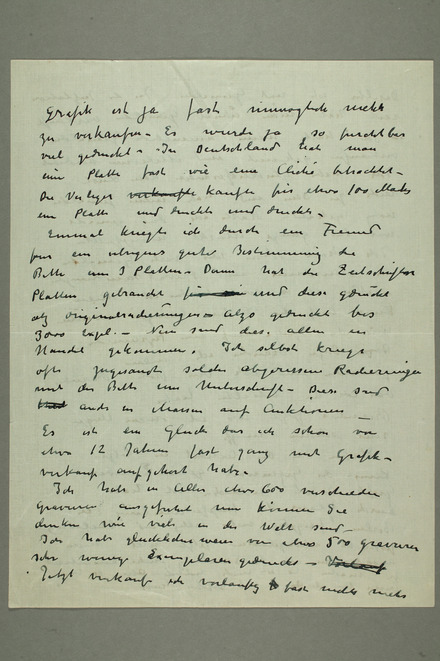 Grafik ist ja fast unmöglich mehr
zu verkaufen – Es wurde ja so furchtbar
viel gedruckt – In Deutschland hat man
eine Platte fast wie eine Cliché betrachtet –
Die Verleger verkaufte kaufen für etwa 100 Marks
ein Platte und druckte und druckte –
Einmal kriegte ich durch ein Freund
für ein übrigens guter Bestimmung die
Bitte um 3 Platten – Dann hat die Zeitschrift
Platten gebraucht und diese gedruckt
als originalradierungen – Also gedruckt bis
3000 expl. – Nun sind diese allen in
Handel gekommen. Ich selbst kriege
oft zugesandt solche abgerissene Radierungen
mit der Bitte um Unterschrift – Diese sind
auch in Massen auf Auktionen –
Es ist ein Glück das ich schon vor
etwa 12 Jahren fast ganz mit Grafik –
verkauf aufgehört habe –
Ich habe in alles etwa 600 verschieden
Gravuren ausgeführt nun können Sie
denken wie viele in der Welt sind –
Ich habe glücklicherweise von etwa 500 gravuren
sehr wenige Exemplaren gedruckt – Verkauf
Jetzt verkauf ich vorläufig fast nichts mehr